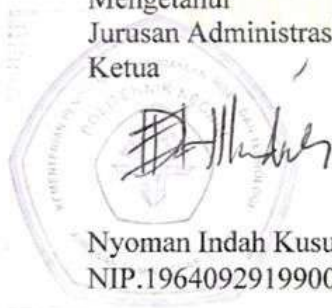 Mengetahui
Jurusan Administras
Ketua
POLITEKNIK NEG
Nyoman Indah Kusu
NIP.1964092919900